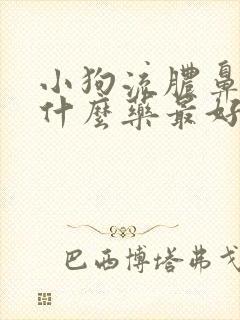 小狗流膿鼻
什麼藥最好
巴西博塔弗戈